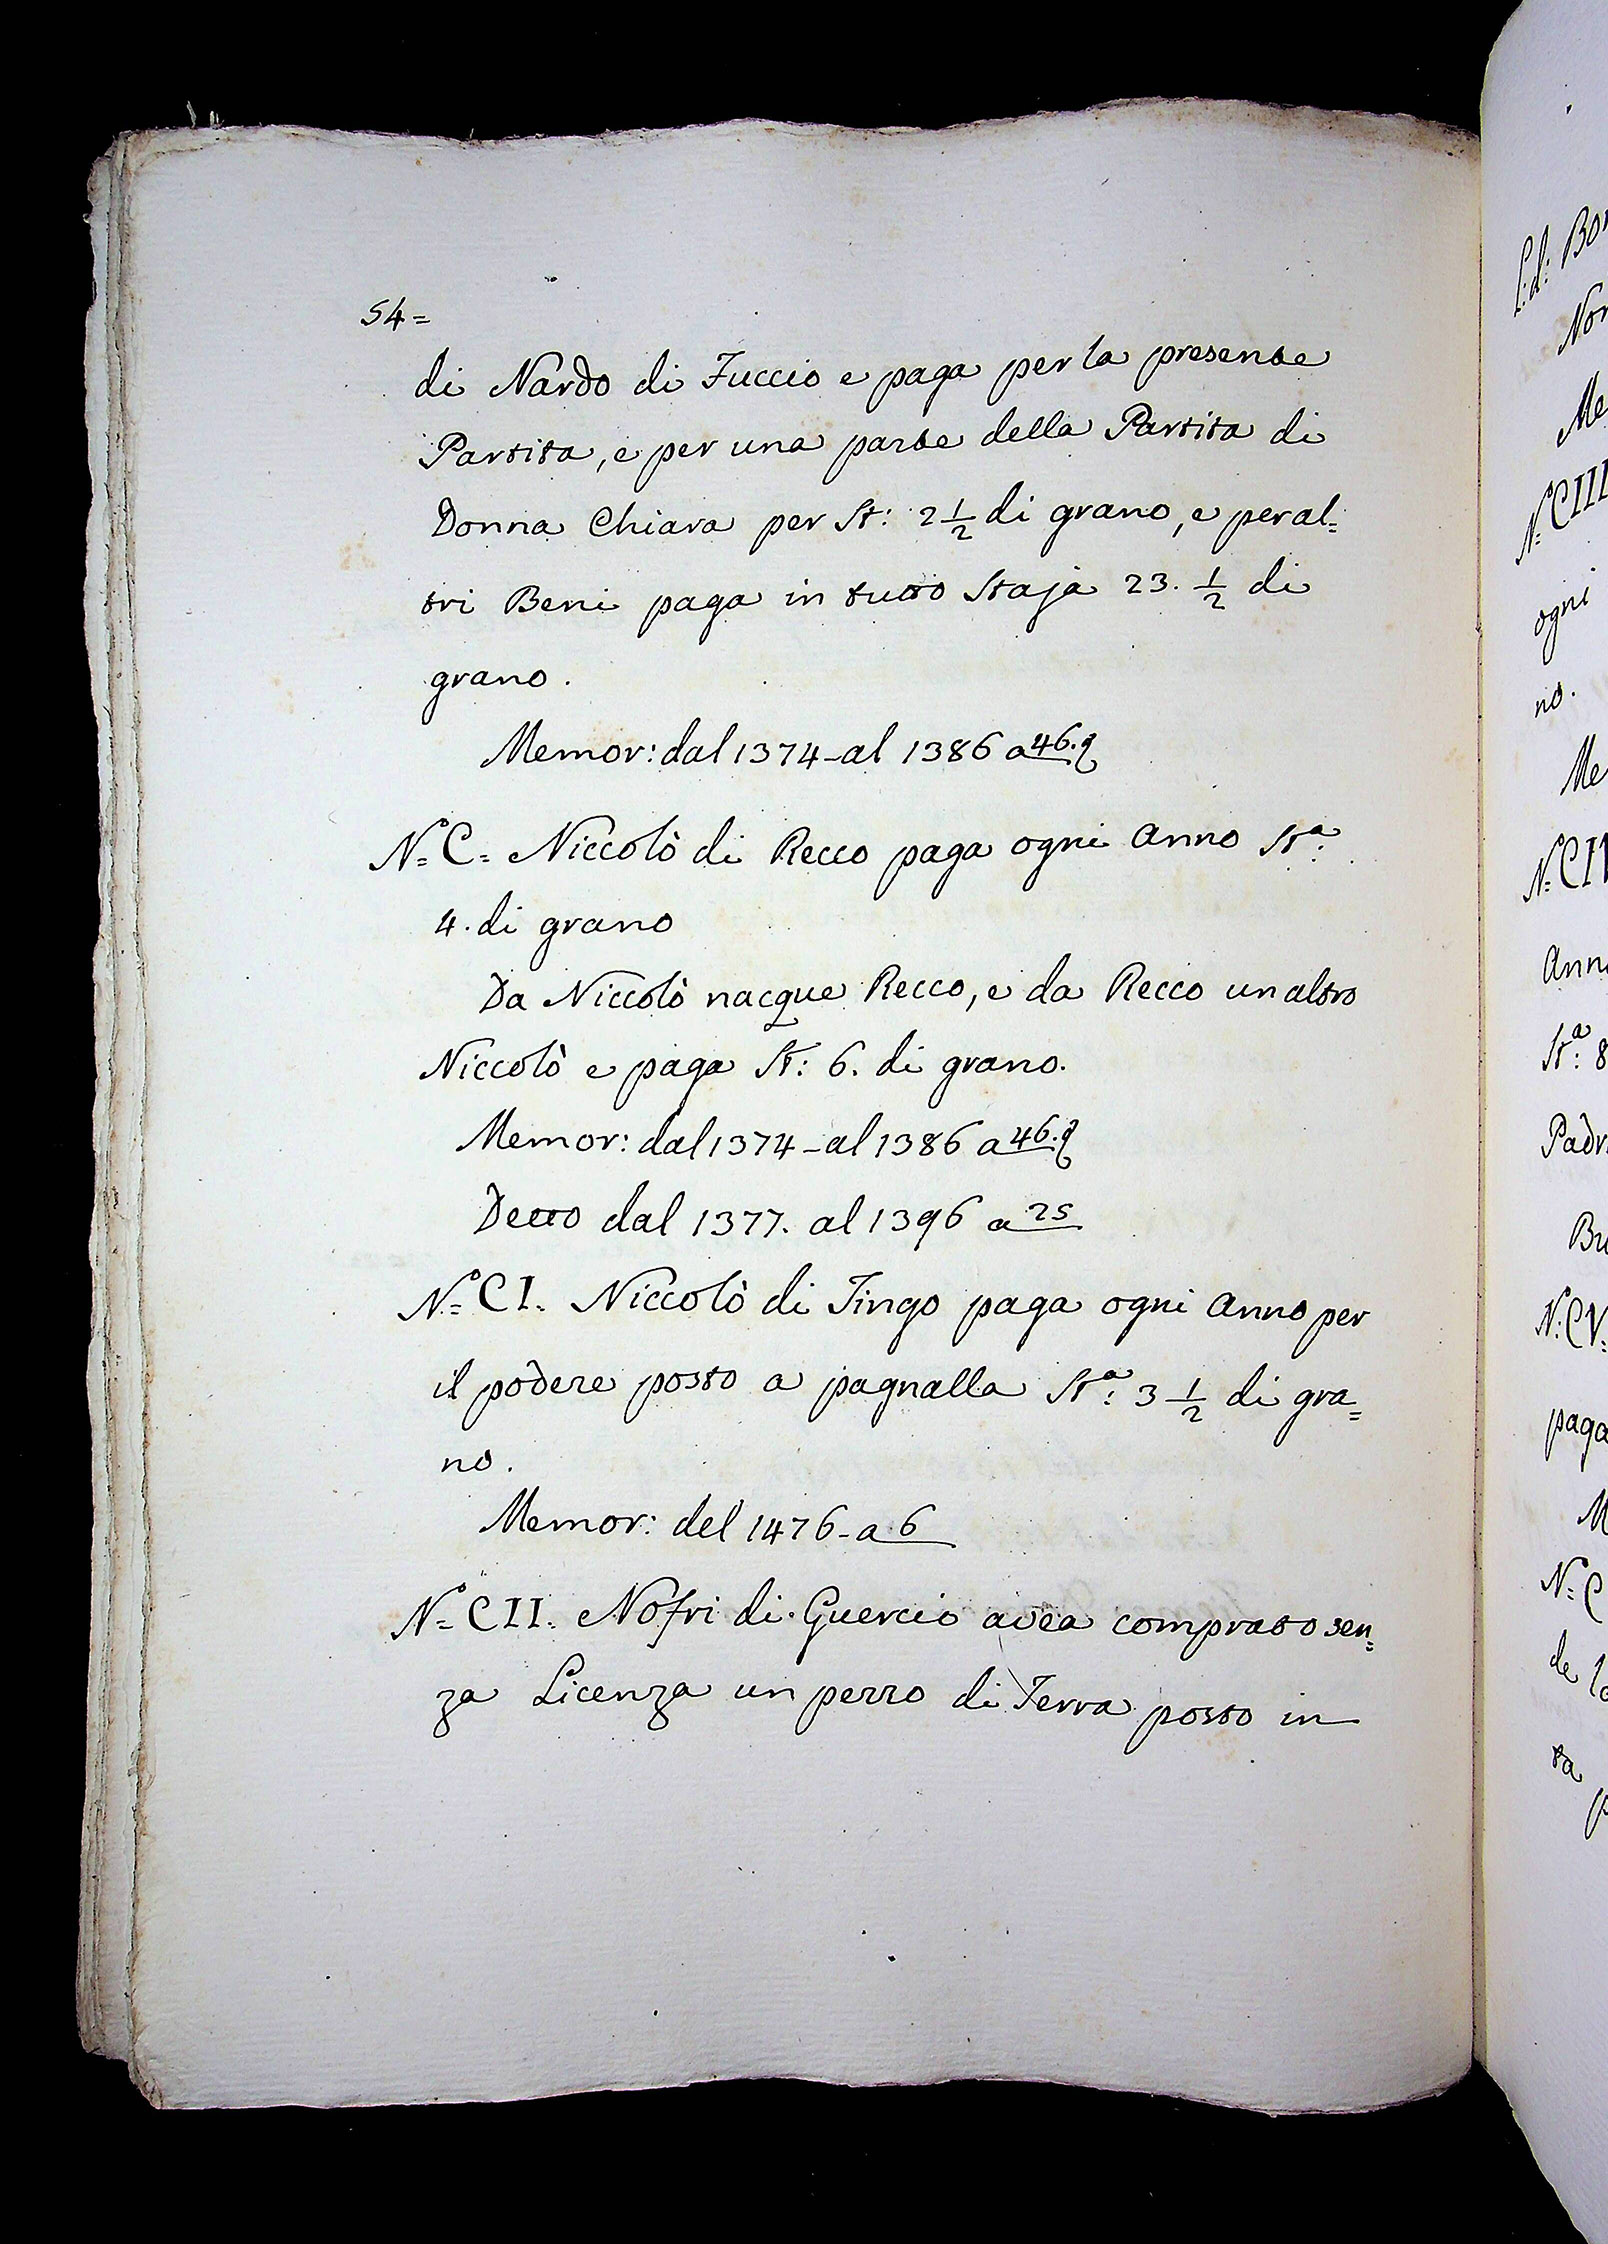 54=
di Nardo di Fuccio e paga per la presente
Partita, e per una parte della Partita di
Donna Chiara per St: 2 1/2 di grano, e per al=
tri Beni paga in tutto Staja 23. 1/2 di
grano.
Memor: dal 1374 - al 1386 a 46.
N.º C= Niccolò di Recco paga ogni Anno St.ª:
4. di grano
Da Niccolò nacque Recco, e da Recco un altro
Niccolò e paga St: 6. di grano.
Memor: dal 1374 - al 1386 a 46.
Detto dal 1377. al 1396 a 25
N.º CI. Niccolò di Tingo paga ogni Anno per
il podere posto a pagnalla St.ª: 3 1/2 di gra=
no.
Memor: del 1476 - a 6
N.º CII. Nofri di Guercio avea comprato sen=
za Licenza un pezzo di Terra posto in
Me
N.º CIII
ogni
no.
Me
Anno
St.ª: 8
paga
de
ta